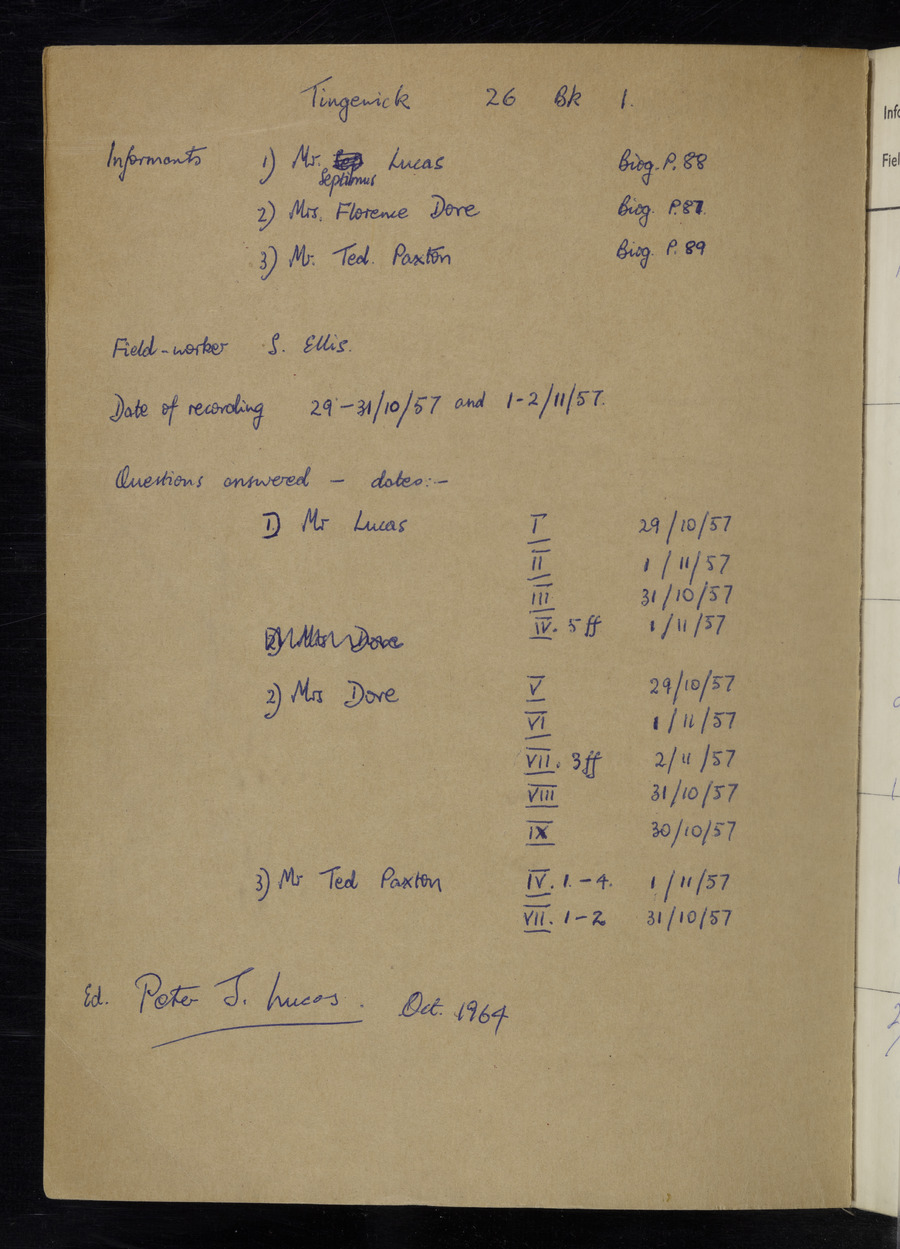 Tingewick 26 Bk 1.
Informants 1) Mr. Lucas Biog. P. 88
Septimus
2) Mrs. Florence Dore Biog. P.87.
3) Mr. Ted. Paxton Biog. P. 89
Field-worker S. Ellis.
Date of recording 29-31/10/57 and 1-2/11/57.
Questions answered - dates:-
1) Mr Lucas I 29/10/57
II 1/11/57
III 31/10/57
IV. 5ff 1/11/57
2) Mrs Dore
2) Mrs Dore V 29/10/57
VI 1/11/57
VII. 3ff 2/11/57
VIII 31/10/57
IX 30/10/57
3) Mr Ted Paxton IV. 1.-4. 1/11/57
VII. 1-2 31/10/57
Ed. Peter J. Lucas. Oct. 1964